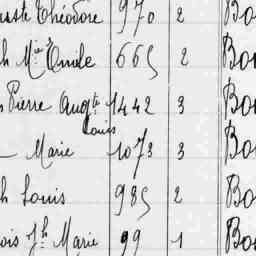 Théodore 970 2 Bo
h Mie Emile 665 2 Bo
Pierre Augte 1442 3 Bo
Louis
Marie 1073 3 Bo
h Louis 985 2 Bo
ois Jh Marie 99 1 Bo